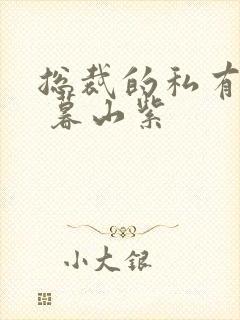 总裁的私有
暮山紫
小大银